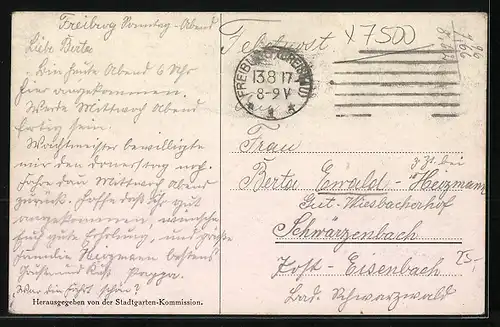 Freiburg Sonntag-Abend
Liebe Berta
Bin heute Abend 6 Uhr
hier angekommen.
Werde Mittwoch Abend
fertig sein.
Wachtmeister bewilligte
mir den Donerstag noch.
Fahre dau Mittwoch Abend
zurück. Hoffe dass Ihr gut
angekommen wünsche
Euch gute Erholung, und grüße
Familie Heizmann bestens
Grüße und Kuß Pappa.
War die Fahrt schön?
Herausgegeben von der Stadtgarten-Kommission.
Feldpost
x7500
FREIBURG (BREISGAU)
13.8.17
8-9V
Frau
Berta Ewald
z. Zt. bei
Heizmann
Gut-Wiesbacherhof
Schwärzenbach
Post-Eisenbach
Bad. Schwarzwald